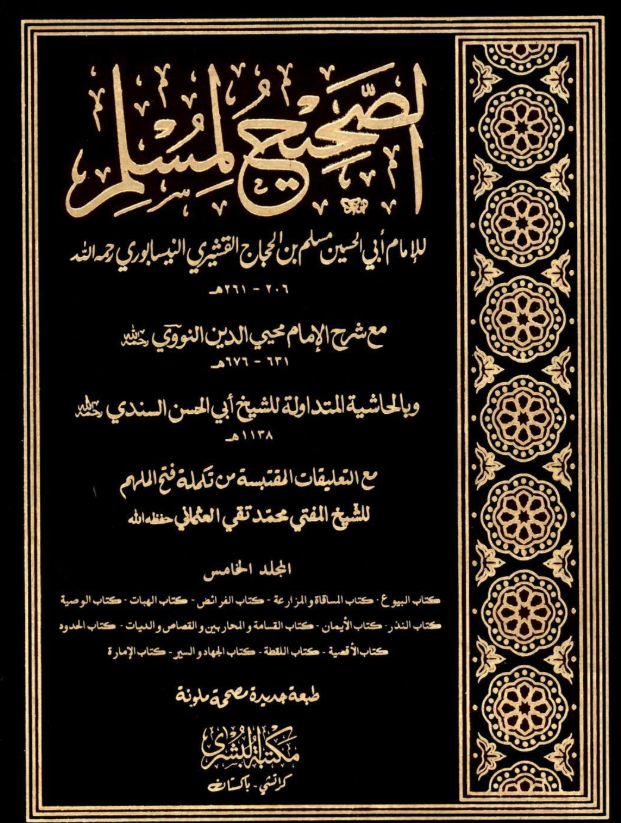 الصحيح لمسلم
للإمام أبي الحسين مسلم بن الحجاج القشيري النيسابوري رحمه الله
٢٠٦ - ٢٦١هـ
مع شرح الإمام محيي الدين النووي رحمه الله
٦٣١ - ٦٧٦هـ
وبالحاشية المتداولة للشيخ أبي الحسن السندي رحمه الله
١١٣٨هـ
مع التعليقات المقتبسة من تكملة فتح الملهم
للشيخ المفتي محمد تقي العثماني حفظه الله
المجلد الخامس
كتاب البيوع - كتاب المساقاة والمزارعة - كتاب الفرائض - كتاب الهبات - كتاب الوصية
كتاب النذر - كتاب الأيمان - كتاب القسامة والمحاربين والقصاص والديات - كتاب الحدود
كتاب الأقضية - كتاب اللقطة - كتاب الجهاد والسير - كتاب الإمارة
طبعة جديدة مصححة ملونة
مكتبة البشرى
كراتشي - باكستان